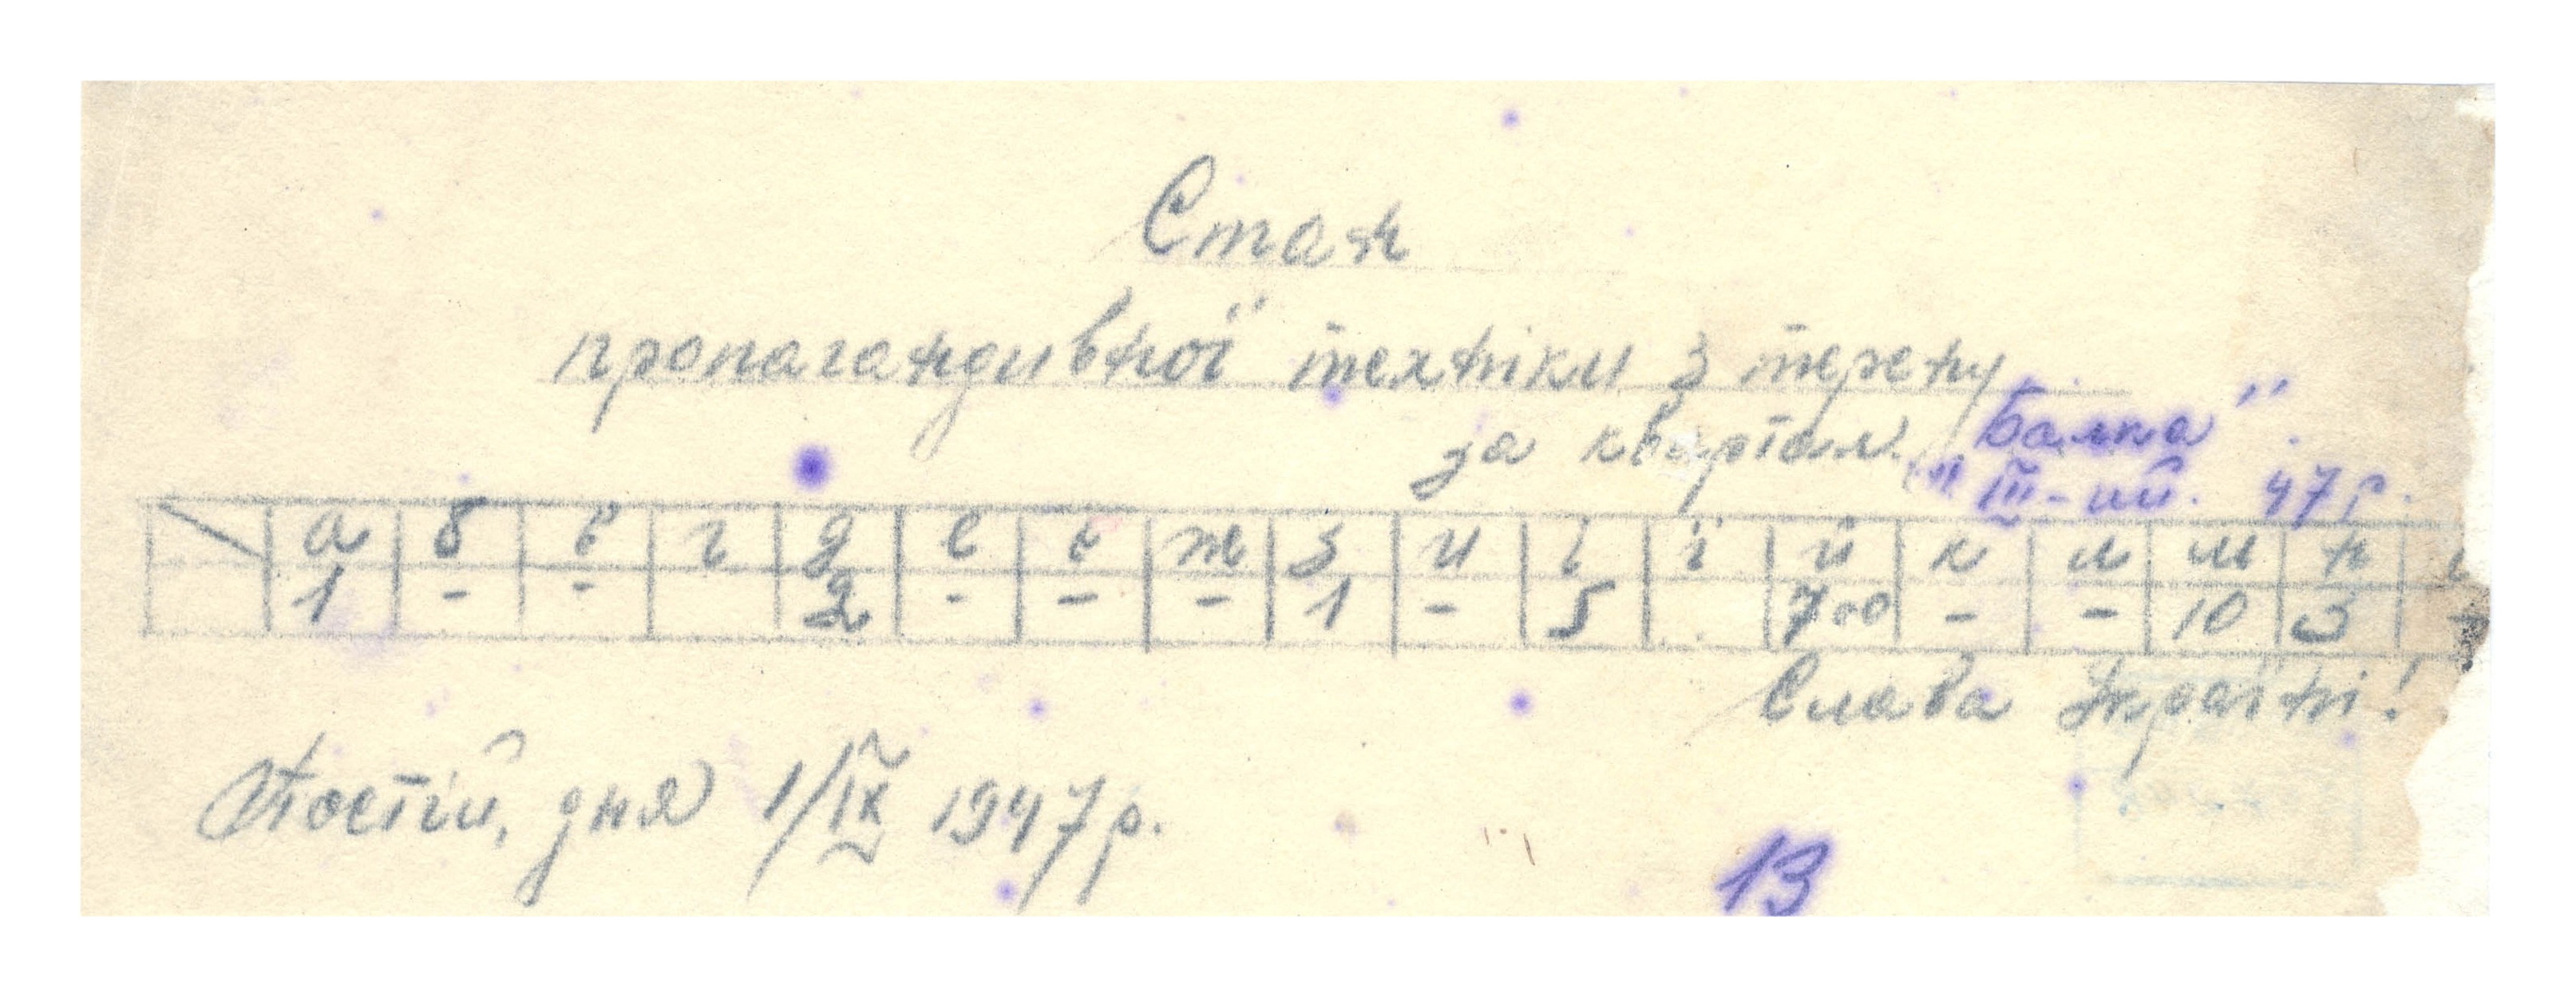 Стан
пропагандивної техніки з терену
за квартал „Балка”.
III-ий. 47 р.
а б в г д е є ж з и і ї й к л м н
1 - - 2 - - - 1 - 5 700 - - 10 3
Слава Україні!
Постій, дня 1/IX 1947 р.
13